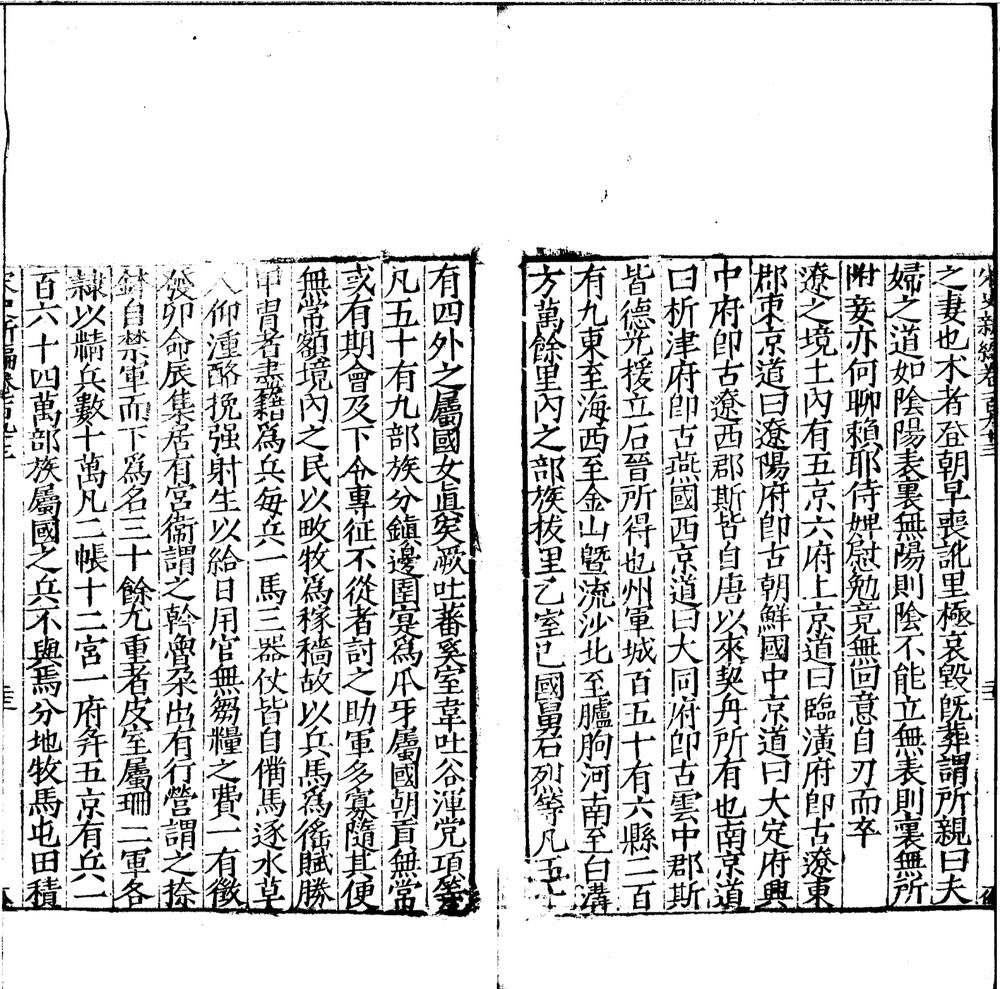 之妻也朮者登朝早喪訛里極哀毀旣葬謂所親曰夫
婦之道如陰陽表裏無陽則陰不能立無表則裏無所
附妾亦何聊賴耶侍婢慰勉竟無回意自刃而卒
遼之境土內有五京六府上京道曰臨潢府卽古遼東
郡東京道曰遼陽府卽古朝鮮國中京道曰大定府興
中府卽古遼西郡斯皆自唐以來契丹所有也南京道
曰析津府卽古燕國西京道曰大同府卽古雲中郡斯
皆德光援立石晉所得也州軍城百五十有六縣二百
有九東至海西至金山曁流沙北至臚朐河南至白溝
方萬餘里內之部族拔里乙室已國舅石烈等凡五十
有四外之屬國女眞突厥吐蕃奚室韋吐谷渾党項等
凡五十有九部族分鎭邊圉寔爲爪牙屬國朝貢無常
或有期會及下令專征不從者討之助軍多寡隨其便
無常額境內之民以畋牧爲稼穡故以兵馬爲徭賦勝
甲冑者盡籍爲兵每兵一馬三器仗皆自備馬逐水草
人仰湩酪挽强射生以給日用官無芻糧之費一有徵
發卯命辰集居有宮衞謂之斡魯朶出有行營謂之捺
鉢自禁軍而下爲名三十餘尤重者皮室屬珊二軍各
隸以精兵數十萬凡二帳十二宮一府幷五京有兵一
百六十四萬部族屬國之兵不與焉分地牧馬屯田積